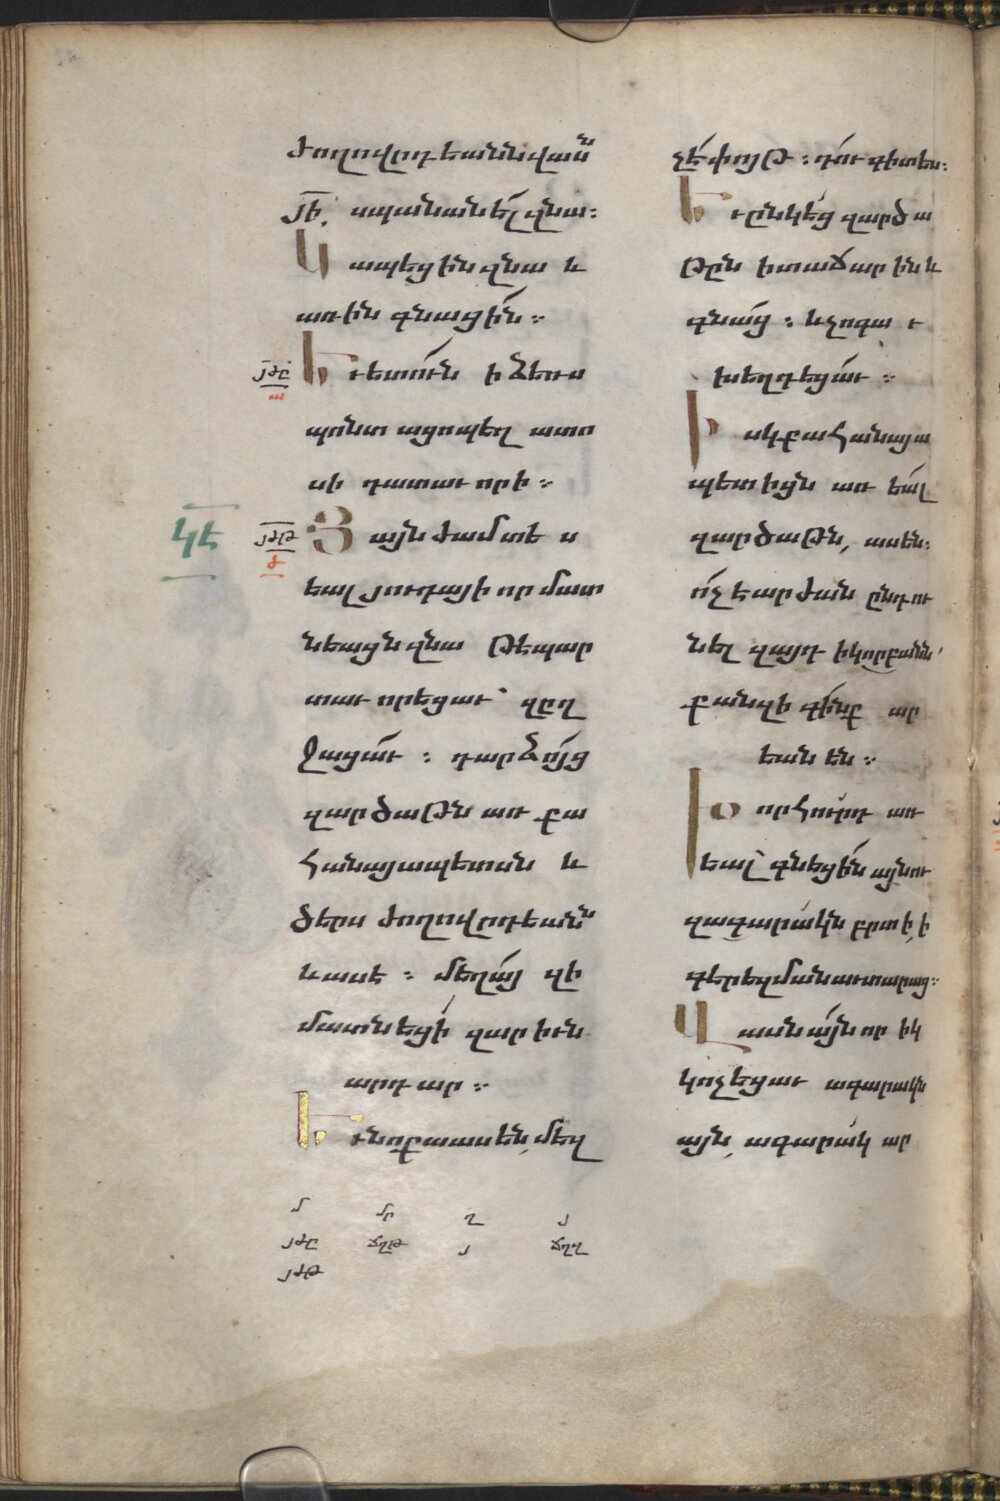 ժողովրդեանն վասն
յի սպանանել զնա։
Կապեցին զնա և
առին գնացին։
յժը
ա
Եւ ետուն ի ձեռս
պոնտացոպեղատո
սի դատաւորի։
ԿԷ
յժթ
ժ
Յայնժամ տես
եալ յուդայի որ մատ
նեացն զնա թէ պար
տաւորեցաւ՝ զըղ
ջացաւ։ դարձոյց
զարծաթն առ քա
հանայապետսն և
ծերս ժողովրդեանն
և ասէ։ մեղայ զի
մատնեցի զարիւն
արդար։
Եւ նոքա ասեն, մեզ
մ մր ղ յ
յժը ճղթ յ ճղղ
յժթ
չէ փոյթ։ դու գիտես։
Եւ ընկեց զարծա
թըն ի տաճարին և
գնաց։ և չոգաւ
խեղդեցաւ։
Իսկ քահանայա
պետիցն առեալ
զարծաթն, ասեն։
ոչ է արժան ընդու
նել զայդ ի կորբանն՝
քանզի գինք ար
եան են։
Խորհուրդ առ
եալ՝ գնեցին այնու
զագարակն բրտի, ի
գերեզման աւտարաց։
Վասն այնորիկ
կոչեցաւ ագարակն
այն, ագարակ ար